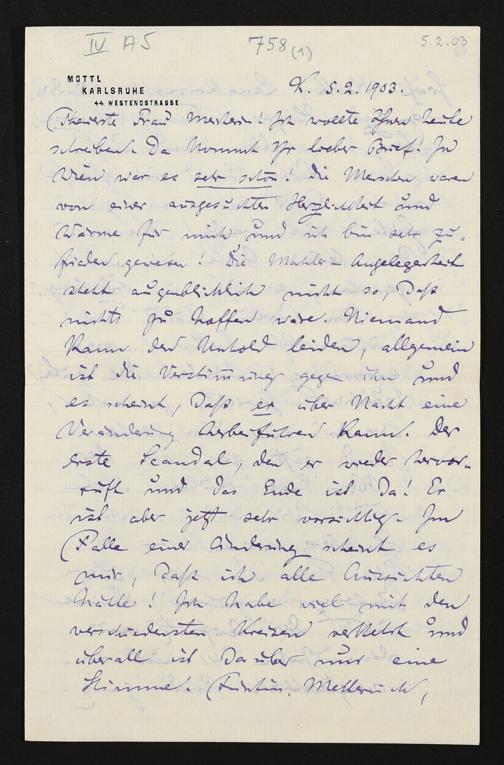 IV A5
758 (1)
5.2.03
MOTTL
KARLSRUHE
44 WESTENDSTRASSE
K. 5.2.1903.
Theuerste Frau Meisterin! Ich wollte Ihnen heute
schreiben. Da kommt Ihr lieber Brief! In
Wien war es sehr schön! Die Menschen waren
von einer ausgesuchten Herzlichkeit und
Wärme für mich und ich bin sehr zu-
frieden gewesen! Die Angelegenheit
steht augenblicklich nicht so, daß
nichts zu hoffen wäre. Niemand
kann den Unhold leiden, allgemein
ist die Verstimmung gegen ihn und
es scheint, daß er über Nacht eine
Veränderung herbeiführen kann. Der
erste Scandal, den er wieder hervor-
ruft und das Ende ist da! Er
ist aber jetzt sehr vorsichtig. Im
Falle einer Änderung scheint es
mir, daß ich alle Aussichten
hätte! Ich habe viel mit den
verschiedensten Kreisen verkehrt und
überall ist darüber nur eine
Stimme. (Fürstin Metternich,